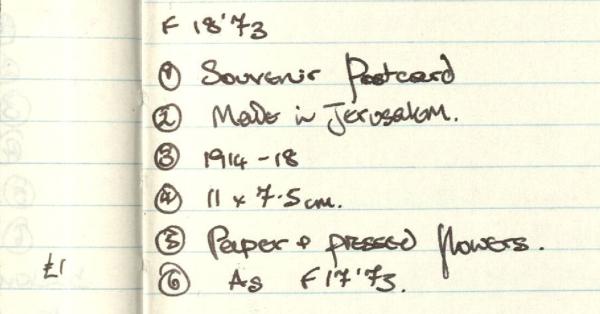 F 18'73
① Souvenir Postcard
② Made in Jerusalem.
③ 1914-18
④ 11 x 7.5 cm.
⑤ Paper + pressed flowers.
£1
⑥ As F17'73.